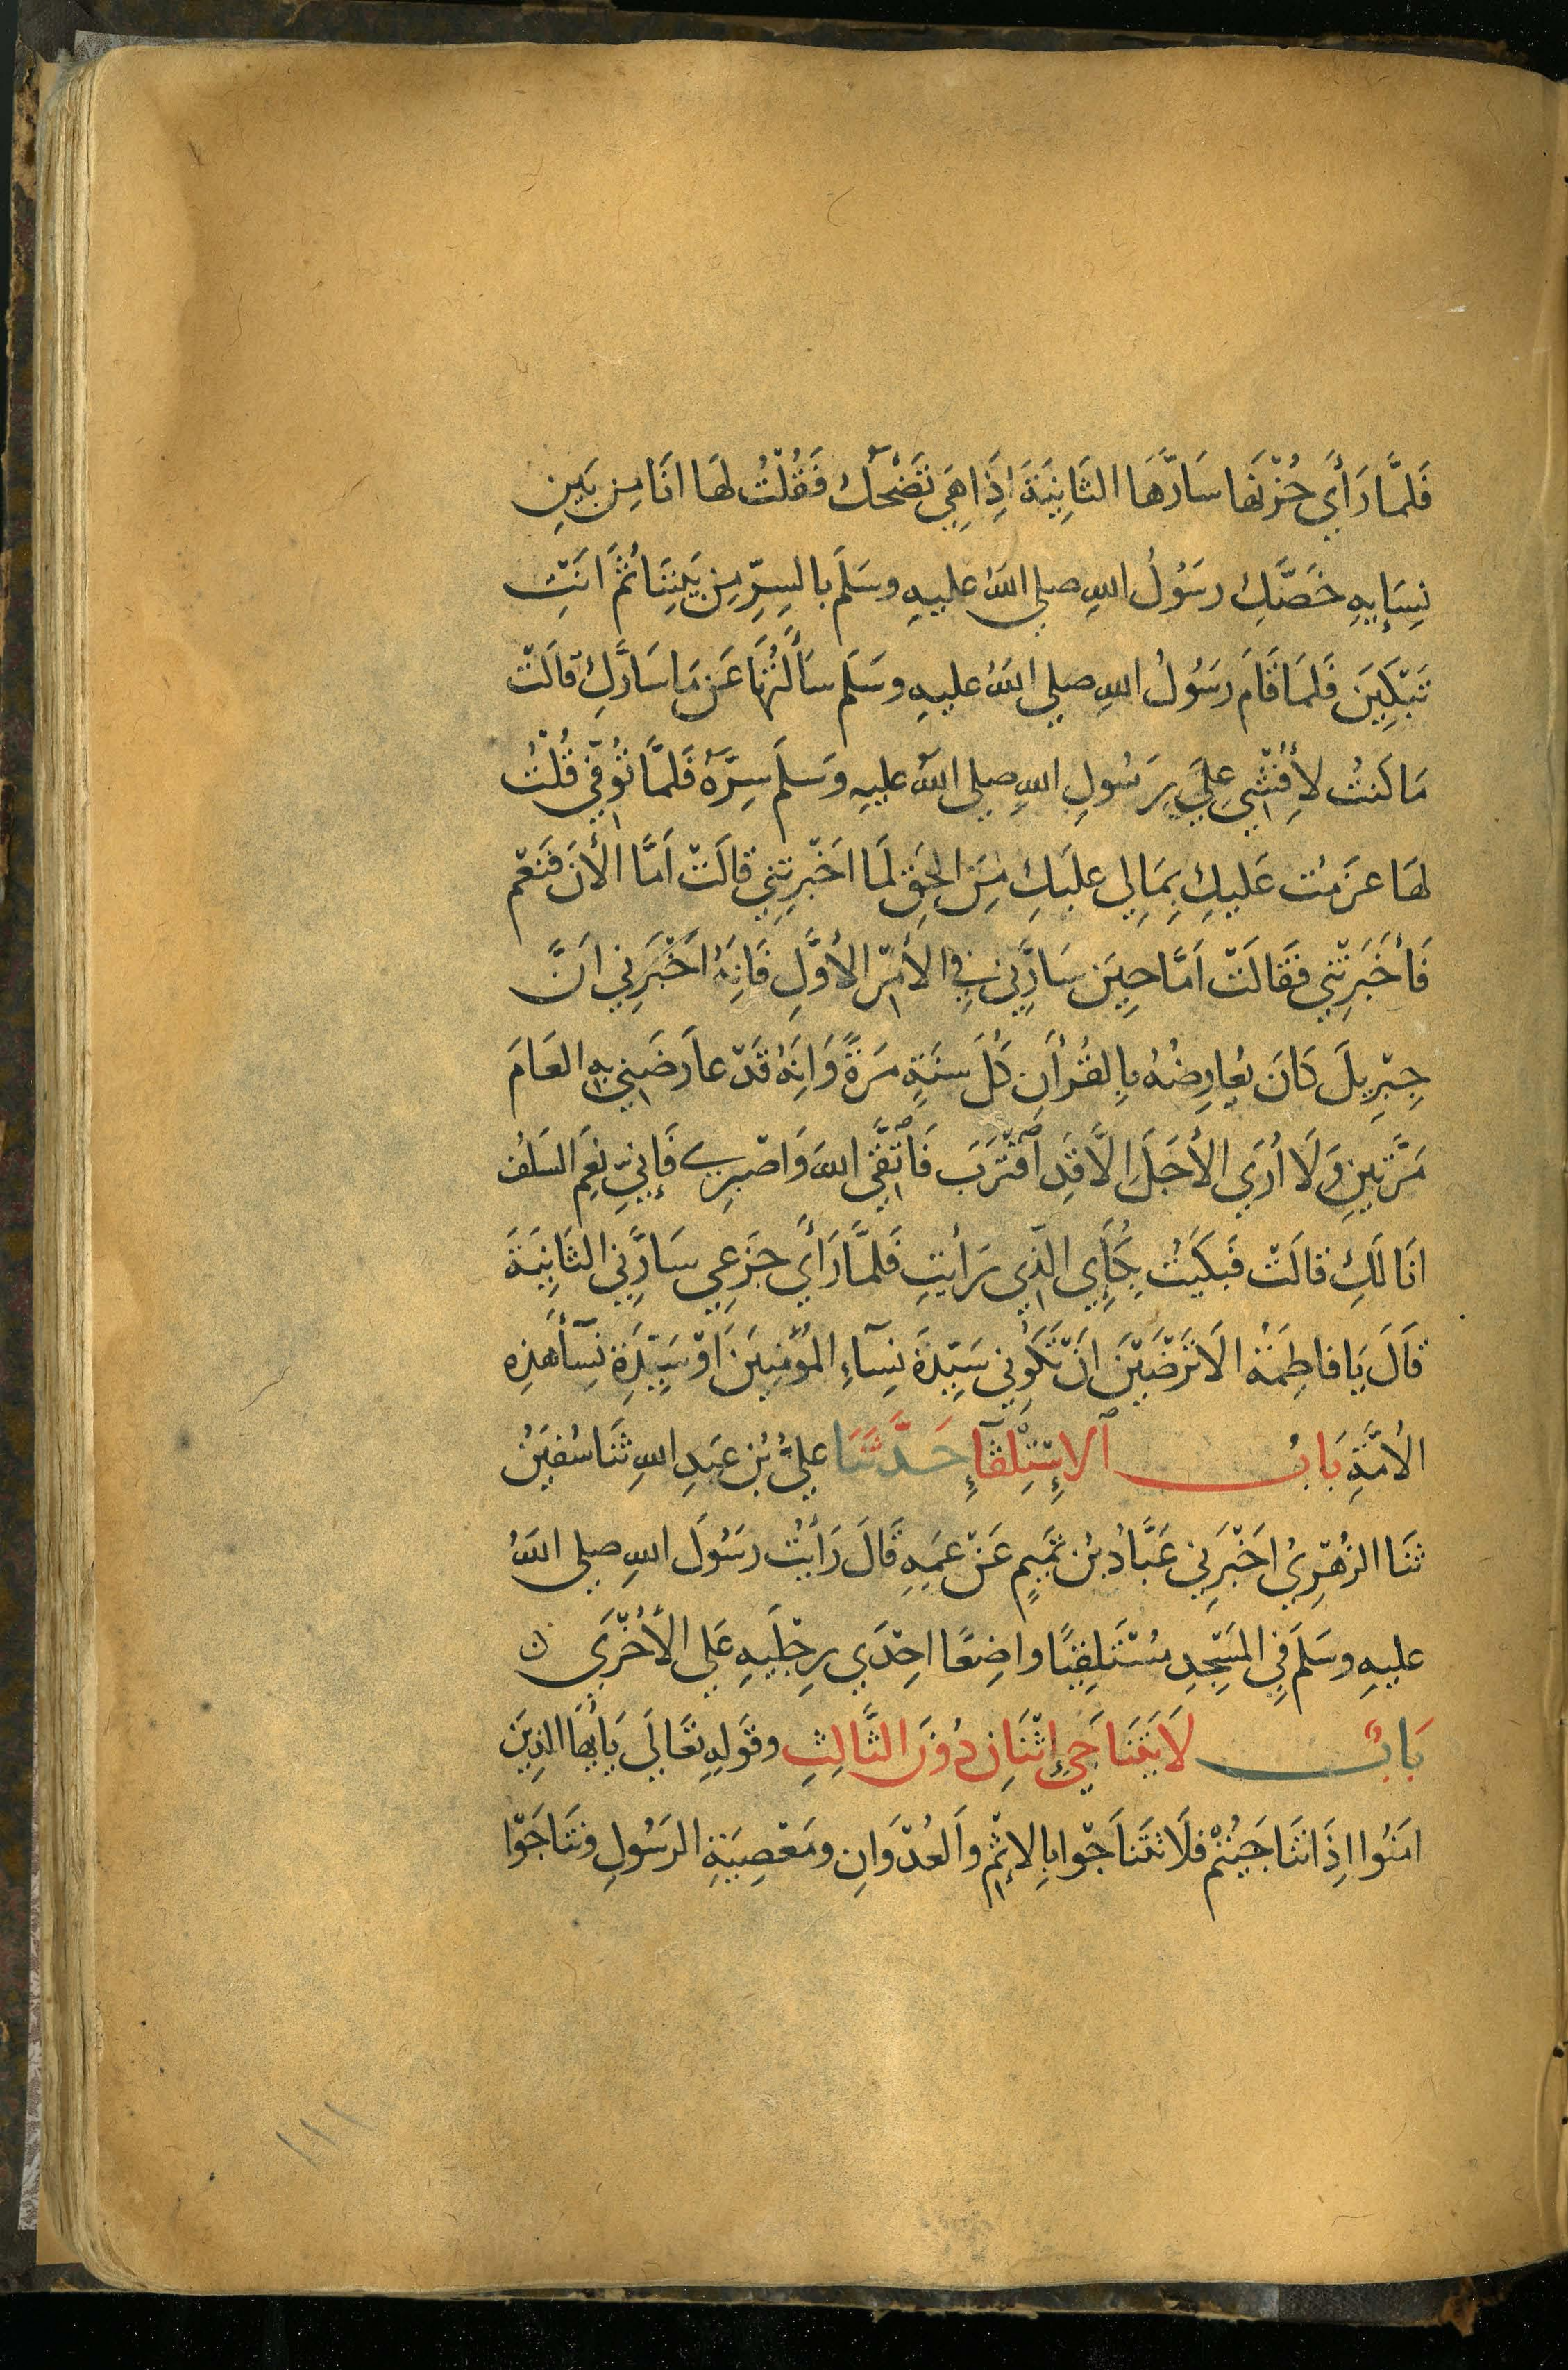 فَلَمَّا رَأَي حُزْنَهَا سَارَّهَا الثَانِيَةَ اِذَا هِيَ تَضْحَكُ فَقُلْتُ لهَا انَا مِن بَينِ
نِسَإيِهِ خَصَّكِ رسَوُلُ اللهِ صلي اللهُ عليهِ وسَلَمَ بالسِرِّ مِن بَيْنِنَا ثُمَ اَنَتِ
تَبْكِينَ فَلَمَا قَامَ رسَوُلُ اللهِ صلي اللهُ عليهِ وسَلَم سَأَلتُهَا عَن مَا سَارَّكِ قالَتْ
مَا كُنتُ لأِفْشِيَ عَلَي رَسُولِ اللهِ صلي اللهُ عليهِ وَسَلَمَ سِرَّهُ فَلَمَّا تُوُفِّيَ قُلْتُ
لهَا عزَمتُ عَليكِ بِمَا لِي عليَكِ مِنَ الحَقِ لَمَا اَخْبَرِتِنِي قالَتْ اَمَّا الأنَ فَنَعَم
فَأَخْبَرَتْنِي فقَالَتْ اَمَّا حِينَ سَارَّنِي في الأَمْرِ الأوَّلِ فَاِنَهُ اَخْبَرَنِي اَنَّ
جِبْرِيلَ كَانَ يُعارِضُهُ بالِقُرْأنِ كُلَ سَنَةٍ مَرَةً وَاِنَهُ قَدْ عاَرضَنِي بِهِ العَامَ
مَرَّتَينِ وَلَا أرَي الأجَلَ اِلَّا قَدِ اقْتَرَبَ فَاتَّقِي اللهَ وَاصْبِرِي فَإنِيّ نِعَم السَلَفُ
انَا لَكِ قالَتْ فَبَكَيْتُ بُكَائِي الَّذِي رَأيَتِ فَلَمَّا رَأَي جَزَعِي سَارَّنِي الثَانِيَةَ
قَالَ يَا فاطِمَةُ الَا تَرْضَيْنَ اَنْ تَكُونِي سَيِّدَةَ نِسَآءِ المُؤْمِنِينَ اَوْ سَيِّدَةَ نِسَآءِ هَذِهِ
الأُمَّةِ بَابُ الاِسْتِلْقَآءِ حَدَّثَنَا عَلِيُّ بْنُ عَبدِ اللهِ ثَنَا سُفيَنُ
ثَنَا الزُهْرِيُ اخَبَرَنِي عَبَّادُ بْنُ تَمِيمٍ عَنْ عَمِهِ قَالَ رَأيَتُ رسَوُلَ اللهِ صلي اللهُ
عليهِ وسَلَمَ فِي المَسْجِدِ مُسْتَلقِيًا واضِعًا احِدَي رِجْليَهِ عَلَي الأُخْرَي ن
بَابُ لَا يَتَنَاجَي إثْنَانِ دُونَ الثَّالِثِ وقَوَلِهِ تَعَالَي يَأيُّهَا الذِينَ
امَنُوا اِذَا تَنَاجَيْتُمْ فَلَا تَتَناَجَوْا بِالإثْمِ والعُدْوَانِ ومَعْصِيَةِ الرسَوُلِ وتَنَاجَوْا
١١١